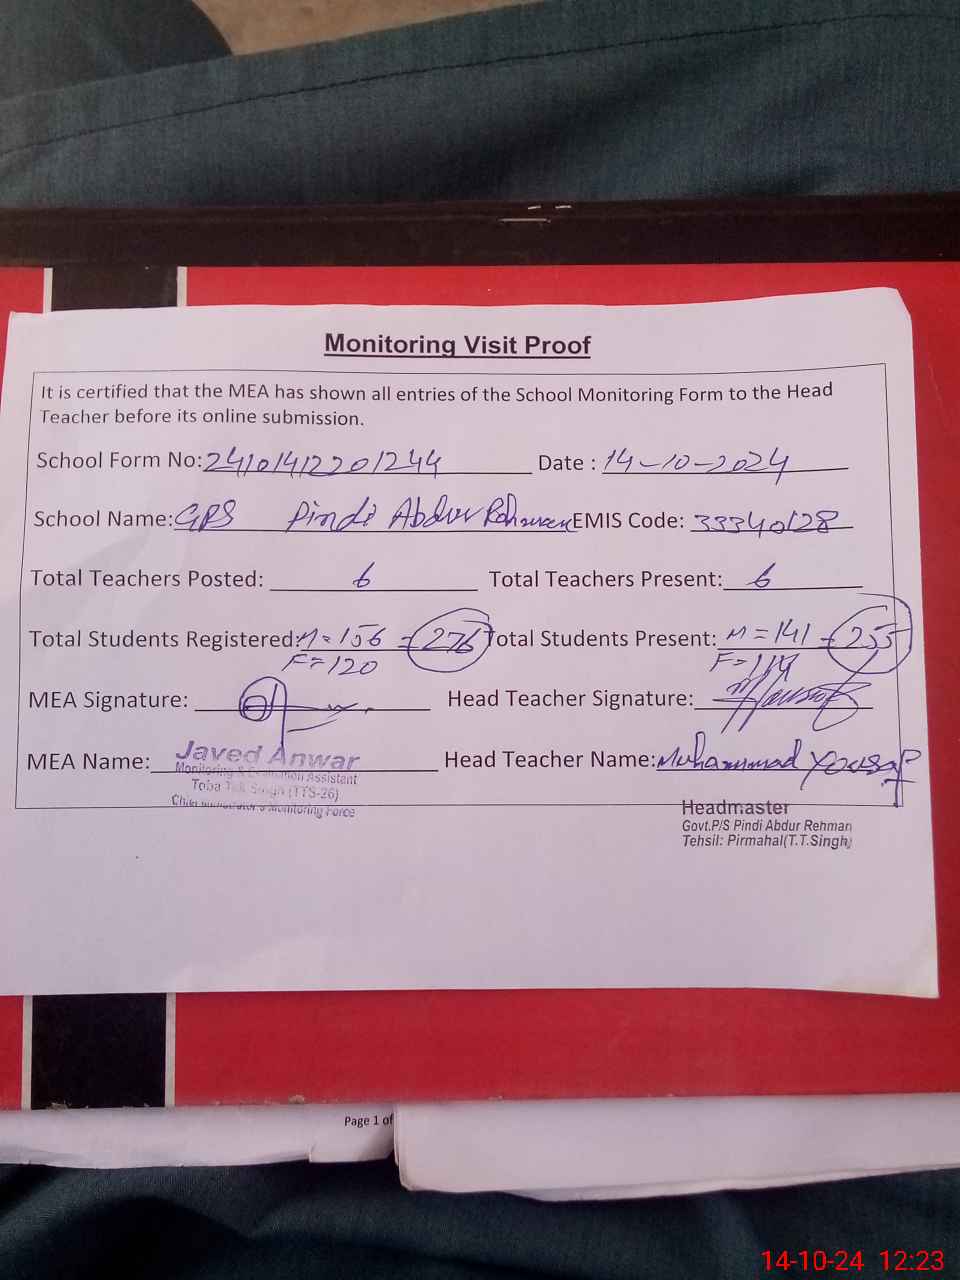 Monitoring Visit Proof
It is certified that the MEA has shown all entries of the School Monitoring Form to the Head
Teacher before its online submission.
School Form No: 24101412201244 Date : 14-10-2024
School Name: GPS Pindi Abdur Rehman EMIS Code: 33340128
Total Teachers Posted: 6 Total Teachers Present: 6
Total Students Registered: M=156 = 276 Total Students Present: M=141 = 255
F=120 F=114
MEA Signature: Head Teacher Signature:
MEA Name: Javed Anwar Head Teacher Name: Muhammad Yousaf
Monitoring & Evaluation Assistant
Toba Tek Singh (TTS-26)
Monitoring Force
Headmaster
Govt.P/S Pindi Abdur Rehman
Tehsil: Pirmahal(T.T.Singh)
Page 1 of
14-10-24 12:23